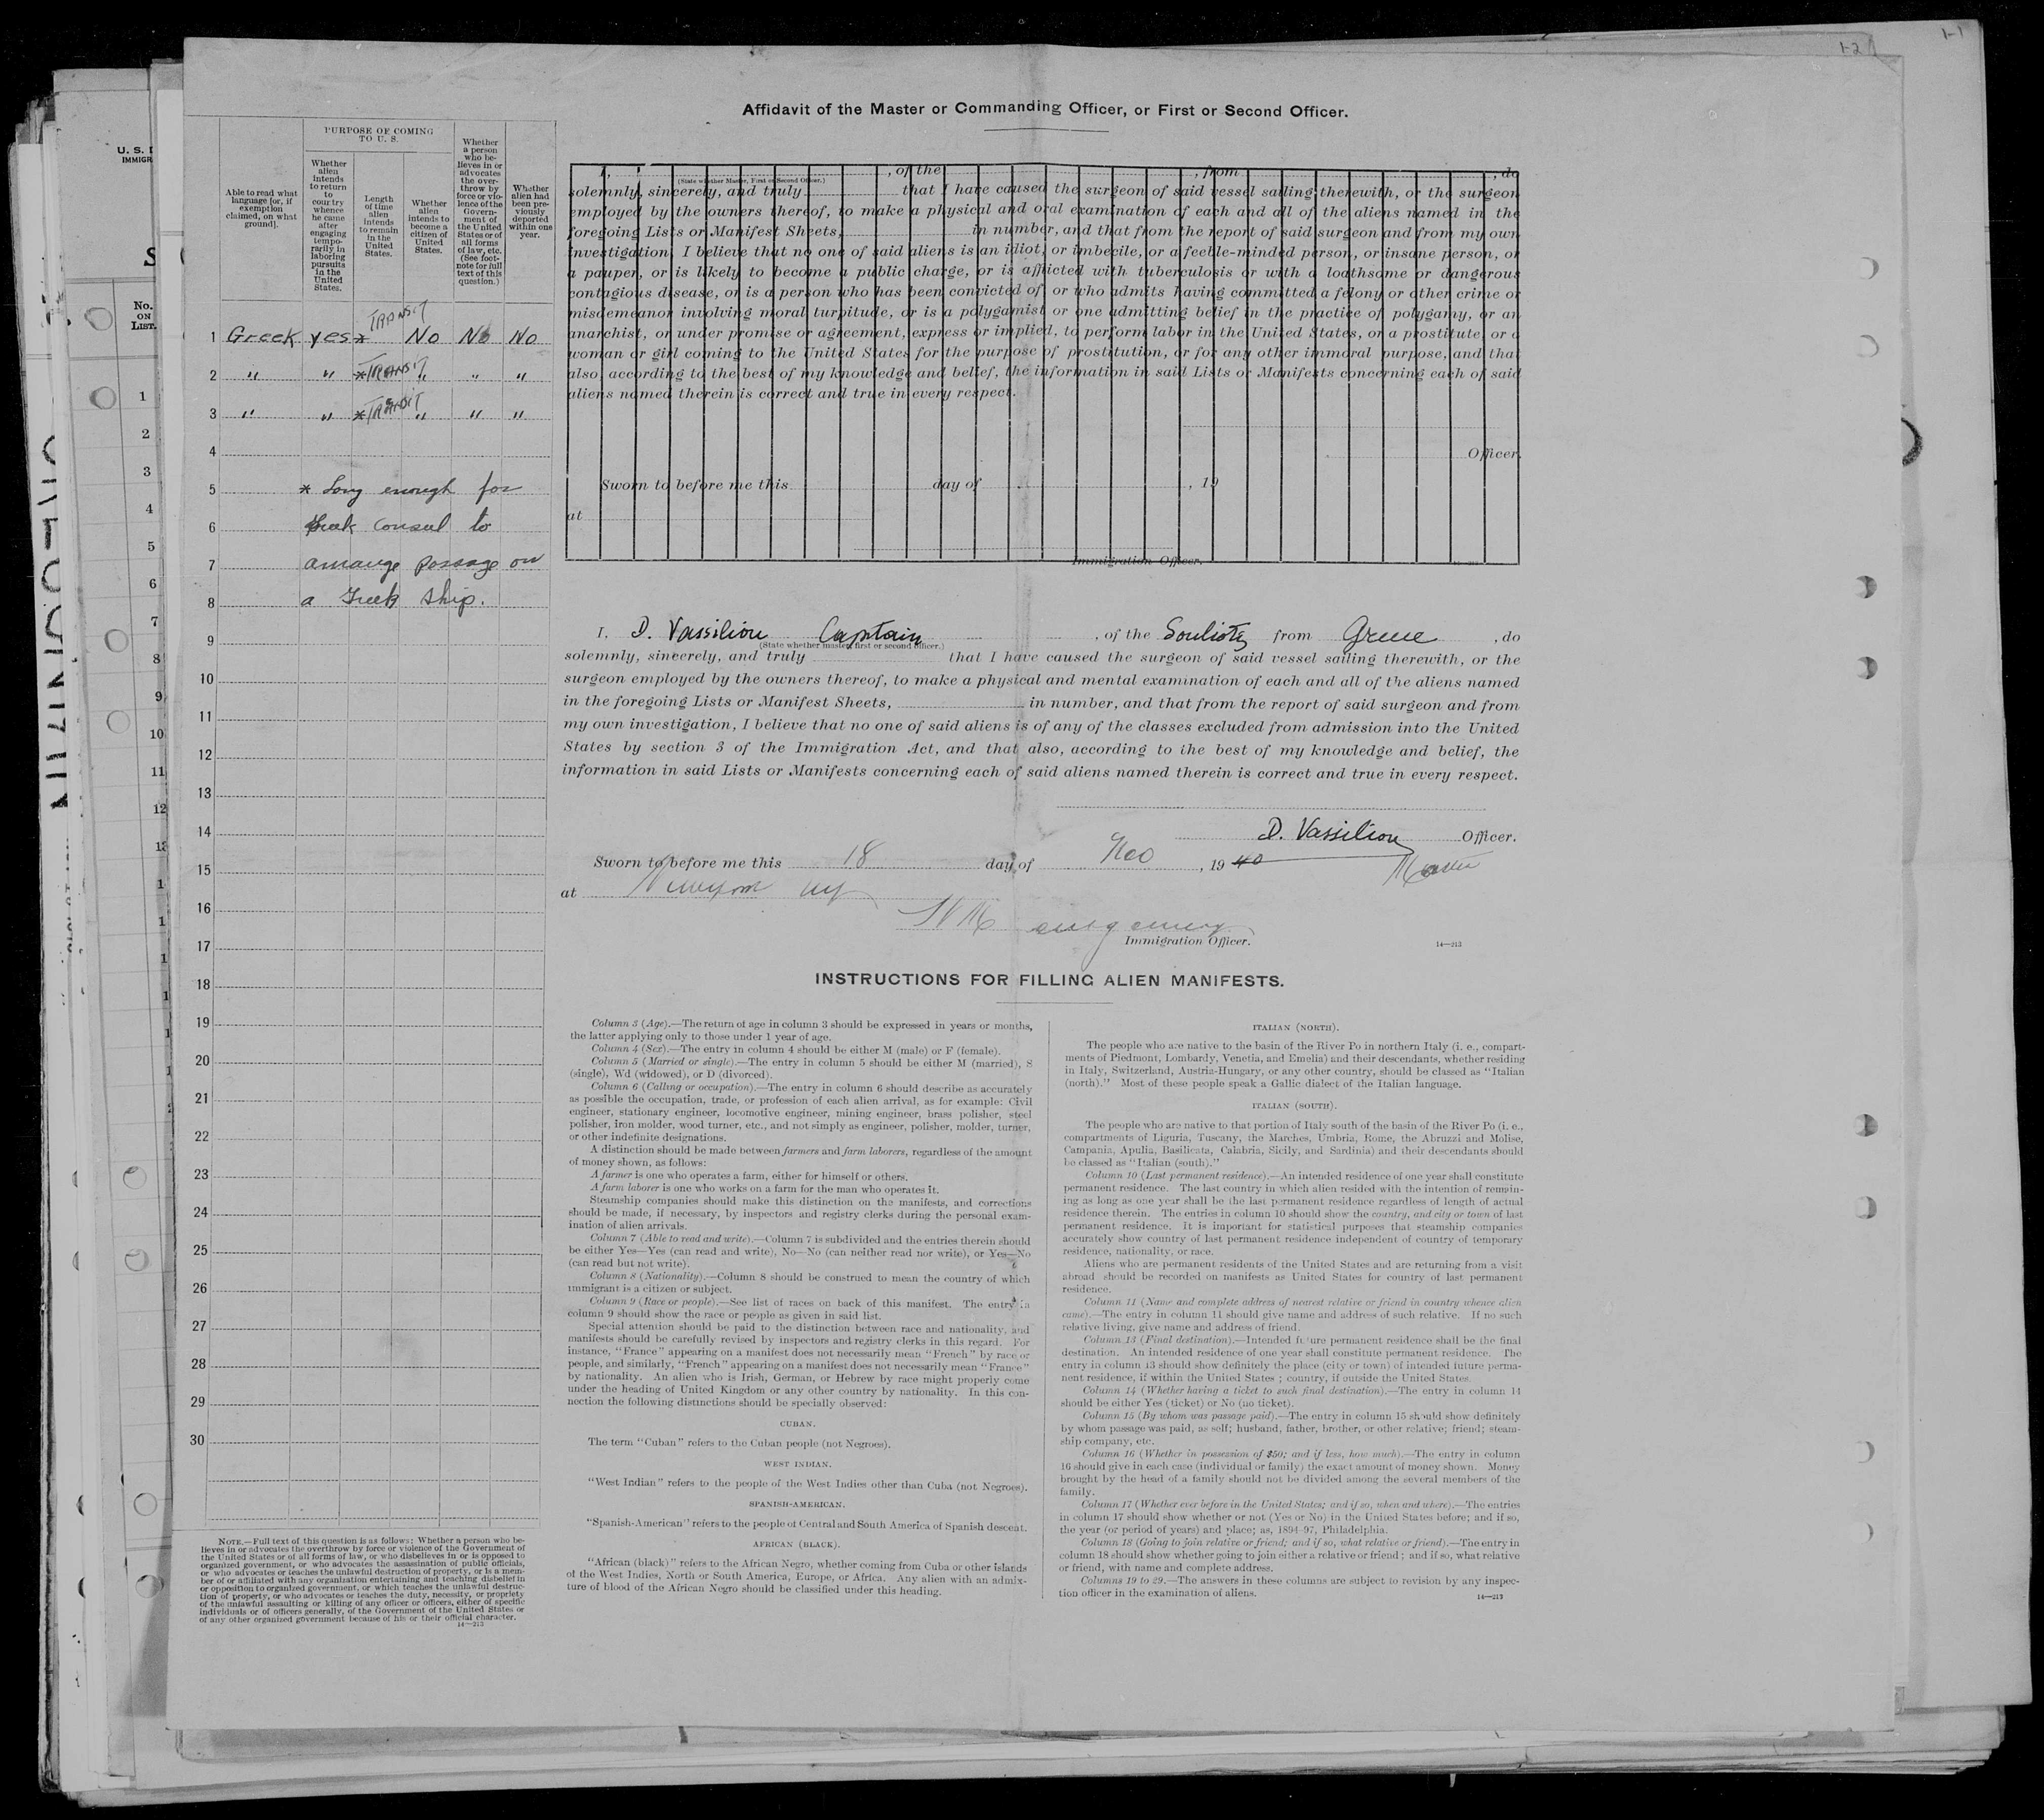 1-1
1-2
Affidavit of the Master or Commanding Officer, or First or Second Officer.
U. S. 
IMMIGR
S
No.
ON
LIST.
1
2
3
4
5
6
7
8
9
10
11
12
PURPOSE OF COMING
TO U. S.
Able to read what
language [or, if
exemption
claimed, on what
ground].
Whether
alien
intends
to return
to
country
whence
he came
after
engaging
tempo-
rarily in
laboring
pursuits
in the
United
States.
Length
of time
alien
intends
to remain
in the
United
States.
Whether
alien
intends to
become a
citizen of
United
States.
Whether
a person
who be-
lieves in or
advocates
the over-
throw by
force or vio-
lence of the
Govern-
ment of
the United
States or of
all forms
of law, etc.
(See foot-
note for full
text of this
question.)
Whether
alien had
been pre-
viously
deported
within one
year.
1 Greek yes * TRANSIT No No No
2 " " * TRANSIT " " "
3 " " * TRANSIT " " "
4
5 * Long enough for
6 Greek Consul to
7 arrange passage on
8 a Greek ship.
9
10
11
12
13
14
15
16
17
18
19
20
21
22
23
24
25
26
27
28
29
30
NOTE.—Full text of this question is as follows: Whether a person who be-
lieves in or advocates the overthrow by force or violence of the Government of
the United States or of all forms of law, or who disbelieves in or is opposed to
organized government, or who advocates the assassination of public officials,
or who advocates or teaches the unlawful destruction of property, or is a mem-
ber of or affiliated with any organization entertaining and teaching disbelief in
or opposition to organized government, or which teaches the unlawful destruc-
tion of property, or who advocates or teaches the duty, necessity, or propriety
of the unlawful assaulting or killing of any officer or officers, either of specific
individuals or of officers generally, of the Government of the United States or
of any other organized government because of his or their official character.
14—213
I, , of the , from , do
(State whether Master, First or Second Officer.)
solemnly, sincerely, and truly that I have caused the surgeon of said vessel sailing therewith, or the surgeon
employed by the owners thereof, to make a physical and oral examination of each and all of the aliens named in the
foregoing Lists or Manifest Sheets, in number, and that from the report of said surgeon and from my own
investigation, I believe that no one of said aliens is an idiot, or imbecile, or a feeble-minded person, or insane person, or
a pauper, or is likely to become a public charge, or is afflicted with tuberculosis or with a loathsome or dangerous
contagious disease, or is a person who has been convicted of, or who admits having committed a felony or other crime or
misdemeanor involving moral turpitude, or is a polygamist or one admitting belief in the practice of polygamy, or an
anarchist, or under promise or agreement, express or implied, to perform labor in the United States, or a prostitute, or a
woman or girl coming to the United States for the purpose of prostitution, or for any other immoral purpose, and that
also, according to the best of my knowledge and belief, the information in said Lists or Manifests concerning each of said
aliens named therein is correct and true in every respect.
Officer.
Sworn to before me this day of , 19
at
Immigration Officer.
I, D. Vassiliou Captain , of the Souliotis from Greece , do
(State whether master, first or second officer.)
solemnly, sincerely, and truly that I have caused the surgeon of said vessel sailing therewith, or the
surgeon employed by the owners thereof, to make a physical and mental examination of each and all of the aliens named
in the foregoing Lists or Manifest Sheets, in number, and that from the report of said surgeon and from
my own investigation, I believe that no one of said aliens is of any of the classes excluded from admission into the United
States by section 3 of the Immigration Act, and that also, according to the best of my knowledge and belief, the
information in said Lists or Manifests concerning each of said aliens named therein is correct and true in every respect.
D. Vassiliou Officer.
Master
Sworn to before me this 18 day of Nov , 19 40
at New York NY
Montgomery
Immigration Officer.
14—213
INSTRUCTIONS FOR FILLING ALIEN MANIFESTS.
Column 3 (Age).—The return of age in column 3 should be expressed in years or months,
the latter applying only to those under 1 year of age.
Column 4 (Sex).—The entry in column 4 should be either M (male) or F (female).
Column 5 (Married or single).—The entry in column 5 should be either M (married), S
(single), Wd (widowed), or D (divorced).
Column 6 (Calling or occupation).—The entry in column 6 should describe as accurately
as possible the occupation, trade, or profession of each alien arrival, as for example: Civil
engineer, stationary engineer, locomotive engineer, mining engineer, brass polisher, steel
polisher, iron molder, wood turner, etc., and not simply as engineer, polisher, molder, turner,
or other indefinite designations.
A distinction should be made between farmers and farm laborers, regardless of the amount
of money shown, as follows:
A farmer is one who operates a farm, either for himself or others.
A farm laborer is one who works on a farm for the man who operates it.
Steamship companies should make this distinction on the manifests, and corrections
should be made, if necessary, by inspectors and registry clerks during the personal exam-
ination of alien arrivals.
Column 7 (Able to read and write).—Column 7 is subdivided and the entries therein should
be either Yes—Yes (can read and write), No—No (can neither read nor write), or Yes—No
(can read but not write).
Column 8 (Nationality).—Column 8 should be construed to mean the country of which
immigrant is a citizen or subject.
Column 9 (Race or people).—See list of races on back of this manifest. The entry in
column 9 should show the race or people as given in said list.
Special attention should be paid to the distinction between race and nationality, and
manifests should be carefully revised by inspectors and registry clerks in this regard. For
instance, "France" appearing on a manifest does not necessarily mean "French" by race or
people, and similarly, "French" appearing on a manifest does not necessarily mean "France"
by nationality. An alien who is Irish, German, or Hebrew by race might properly come
under the heading of United Kingdom or any other country by nationality. In this con-
nection the following distinctions should be specially observed:
CUBAN.
The term "Cuban" refers to the Cuban people (not Negroes).
WEST INDIAN.
"West Indian" refers to the people of the West Indies other than Cuba (not Negroes).
SPANISH-AMERICAN.
"Spanish-American" refers to the people of Central and South America of Spanish descent.
AFRICAN (BLACK).
"African (black)" refers to the African Negro, whether coming from Cuba or other islands
of the West Indies, North or South America, Europe, or Africa. Any alien with an admix-
ture of blood of the African Negro should be classified under this heading.
ITALIAN (NORTH).
The people who are native to the basin of the River Po in northern Italy (i. e., compart-
ments of Piedmont, Lombardy, Venetia, and Emelia) and their descendants, whether residing
in Italy, Switzerland, Austria-Hungary, or any other country, should be classed as "Italian
(north)." Most of these people speak a Gallic dialect of the Italian language.
ITALIAN (SOUTH).
The people who are native to that portion of Italy south of the basin of the River Po (i. e.,
compartments of Liguria, Tuscany, the Marches, Umbria, Rome, the Abruzzi and Molise,
Campania, Apulia, Basilicata, Calabria, Sicily, and Sardinia) and their descendants should
be classed as "Italian (south)."
Column 10 (Last permanent residence).—An intended residence of one year shall constitute
permanent residence. The last country in which alien resided with the intention of remain-
ing as long as one year shall be the last permanent residence regardless of length of actual
residence therein. The entries in column 10 should show the country, and city or town of last
permanent residence. It is important for statistical purposes that steamship companies
accurately show country of last permanent residence independent of country of temporary
residence, nationality, or race.
Aliens who are permanent residents of the United States and are returning from a visit
abroad should be recorded on manifests as United States for country of last permanent
residence.
Column 11 (Name and complete address of nearest relative or friend in country whence alien
came).—The entry in column 11 should give name and address of such relative. If no such
relative living, give name and address of friend.
Column 13 (Final destination).—Intended future permanent residence shall be the final
destination. An intended residence of one year shall constitute permanent residence. The
entry in column 13 should show definitely the place (city or town) of intended future perma-
nent residence, if within the United States; country, if outside the United States.
Column 14 (Whether having a ticket to such final destination).—The entry in column 14
should be either Yes (ticket) or No (no ticket).
Column 15 (By whom was passage paid).—The entry in column 15 should show definitely
by whom passage was paid, as self; husband, father, brother, or other relative; friend; steam-
ship company, etc.
Column 16 (Whether in possession of $50; and if less, how much).—The entry in column
16 should give in each case (individual or family) the exact amount of money shown. Money
brought by the head of a family should not be divided among the several members of the
family.
Column 17 (Whether ever before in the United States; and if so, when and where).—The entries
in column 17 should show whether or not (Yes or No) in the United States before; and if so,
the year (or period of years) and place; as, 1894-97, Philadelphia.
Column 18 (Going to join relative or friend; and if so, what relative or friend).—The entry in
column 18 should show whether going to join either a relative or friend; and if so, what relative
or friend, with name and complete address.
Columns 19 to 29.—The answers in these columns are subject to revision by any inspec-
tion officer in the examination of aliens.
14—213